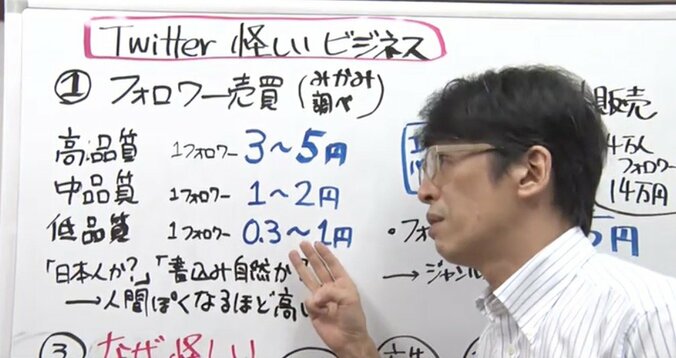 Twitter 怪しいビジネス
① フォロワー売買 (みかみ調べ)
高品質 1フォロワー 3〜5円
中品質 1フォロワー 1〜2円
低品質 1フォロワー 0.3〜1円
「日本人か?」「書込み自然か
→人間ぽくなるほど高い
③ なぜ怪しい
販売
4万人
フォロワー
14万円
・フォ
円
→ジャンル